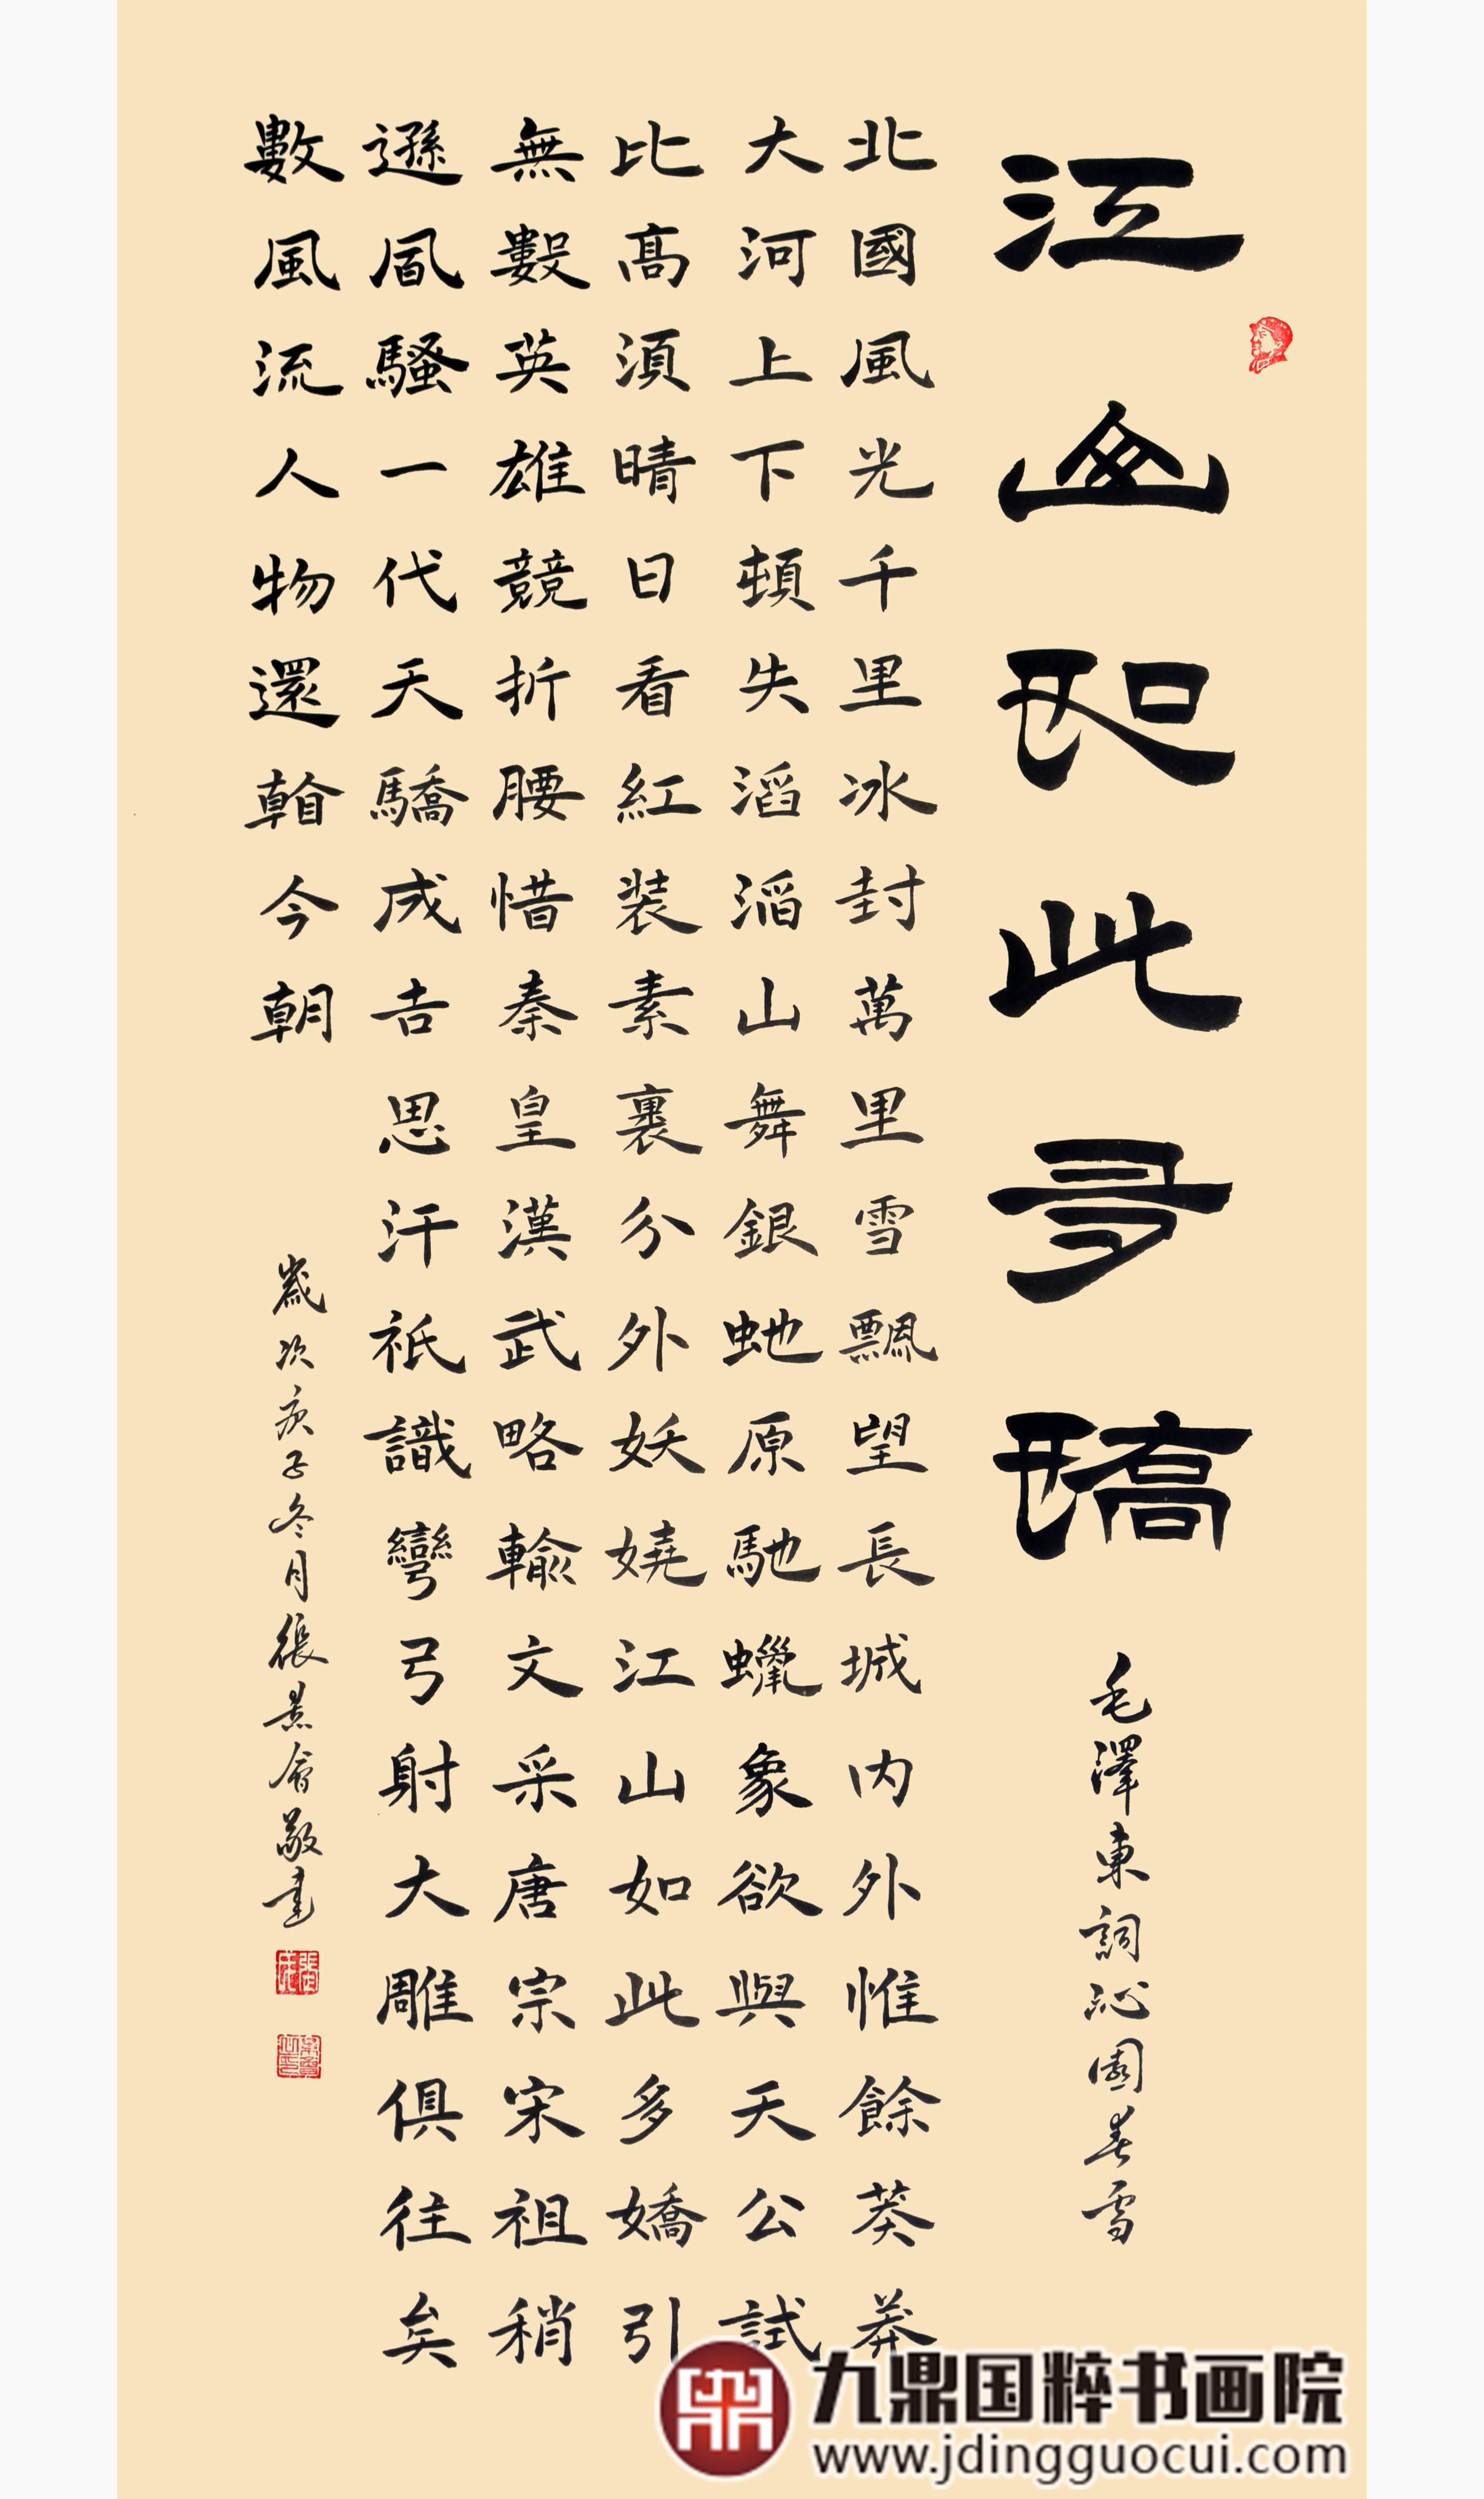 江山如此多嬌
毛澤東詞沁園春雪
北國風光千里冰封萬里雪飄望長城內外惟餘莽莽
大河上下頓失滔滔山舞銀虵原馳蠟象欲與天公試
比高須晴日看紅裝素裹分外妖嬈江山如此多嬌引
無數英雄競折腰惜秦皇漢武略輸文采唐宗宋祖稍
遜風騷一代天驕成吉思汗祇識彎弓射大雕俱往矣
數風流人物還看今朝
歲次庚子冬月張景敬書
九鼎国粹书画院
www.jdingguocui.com